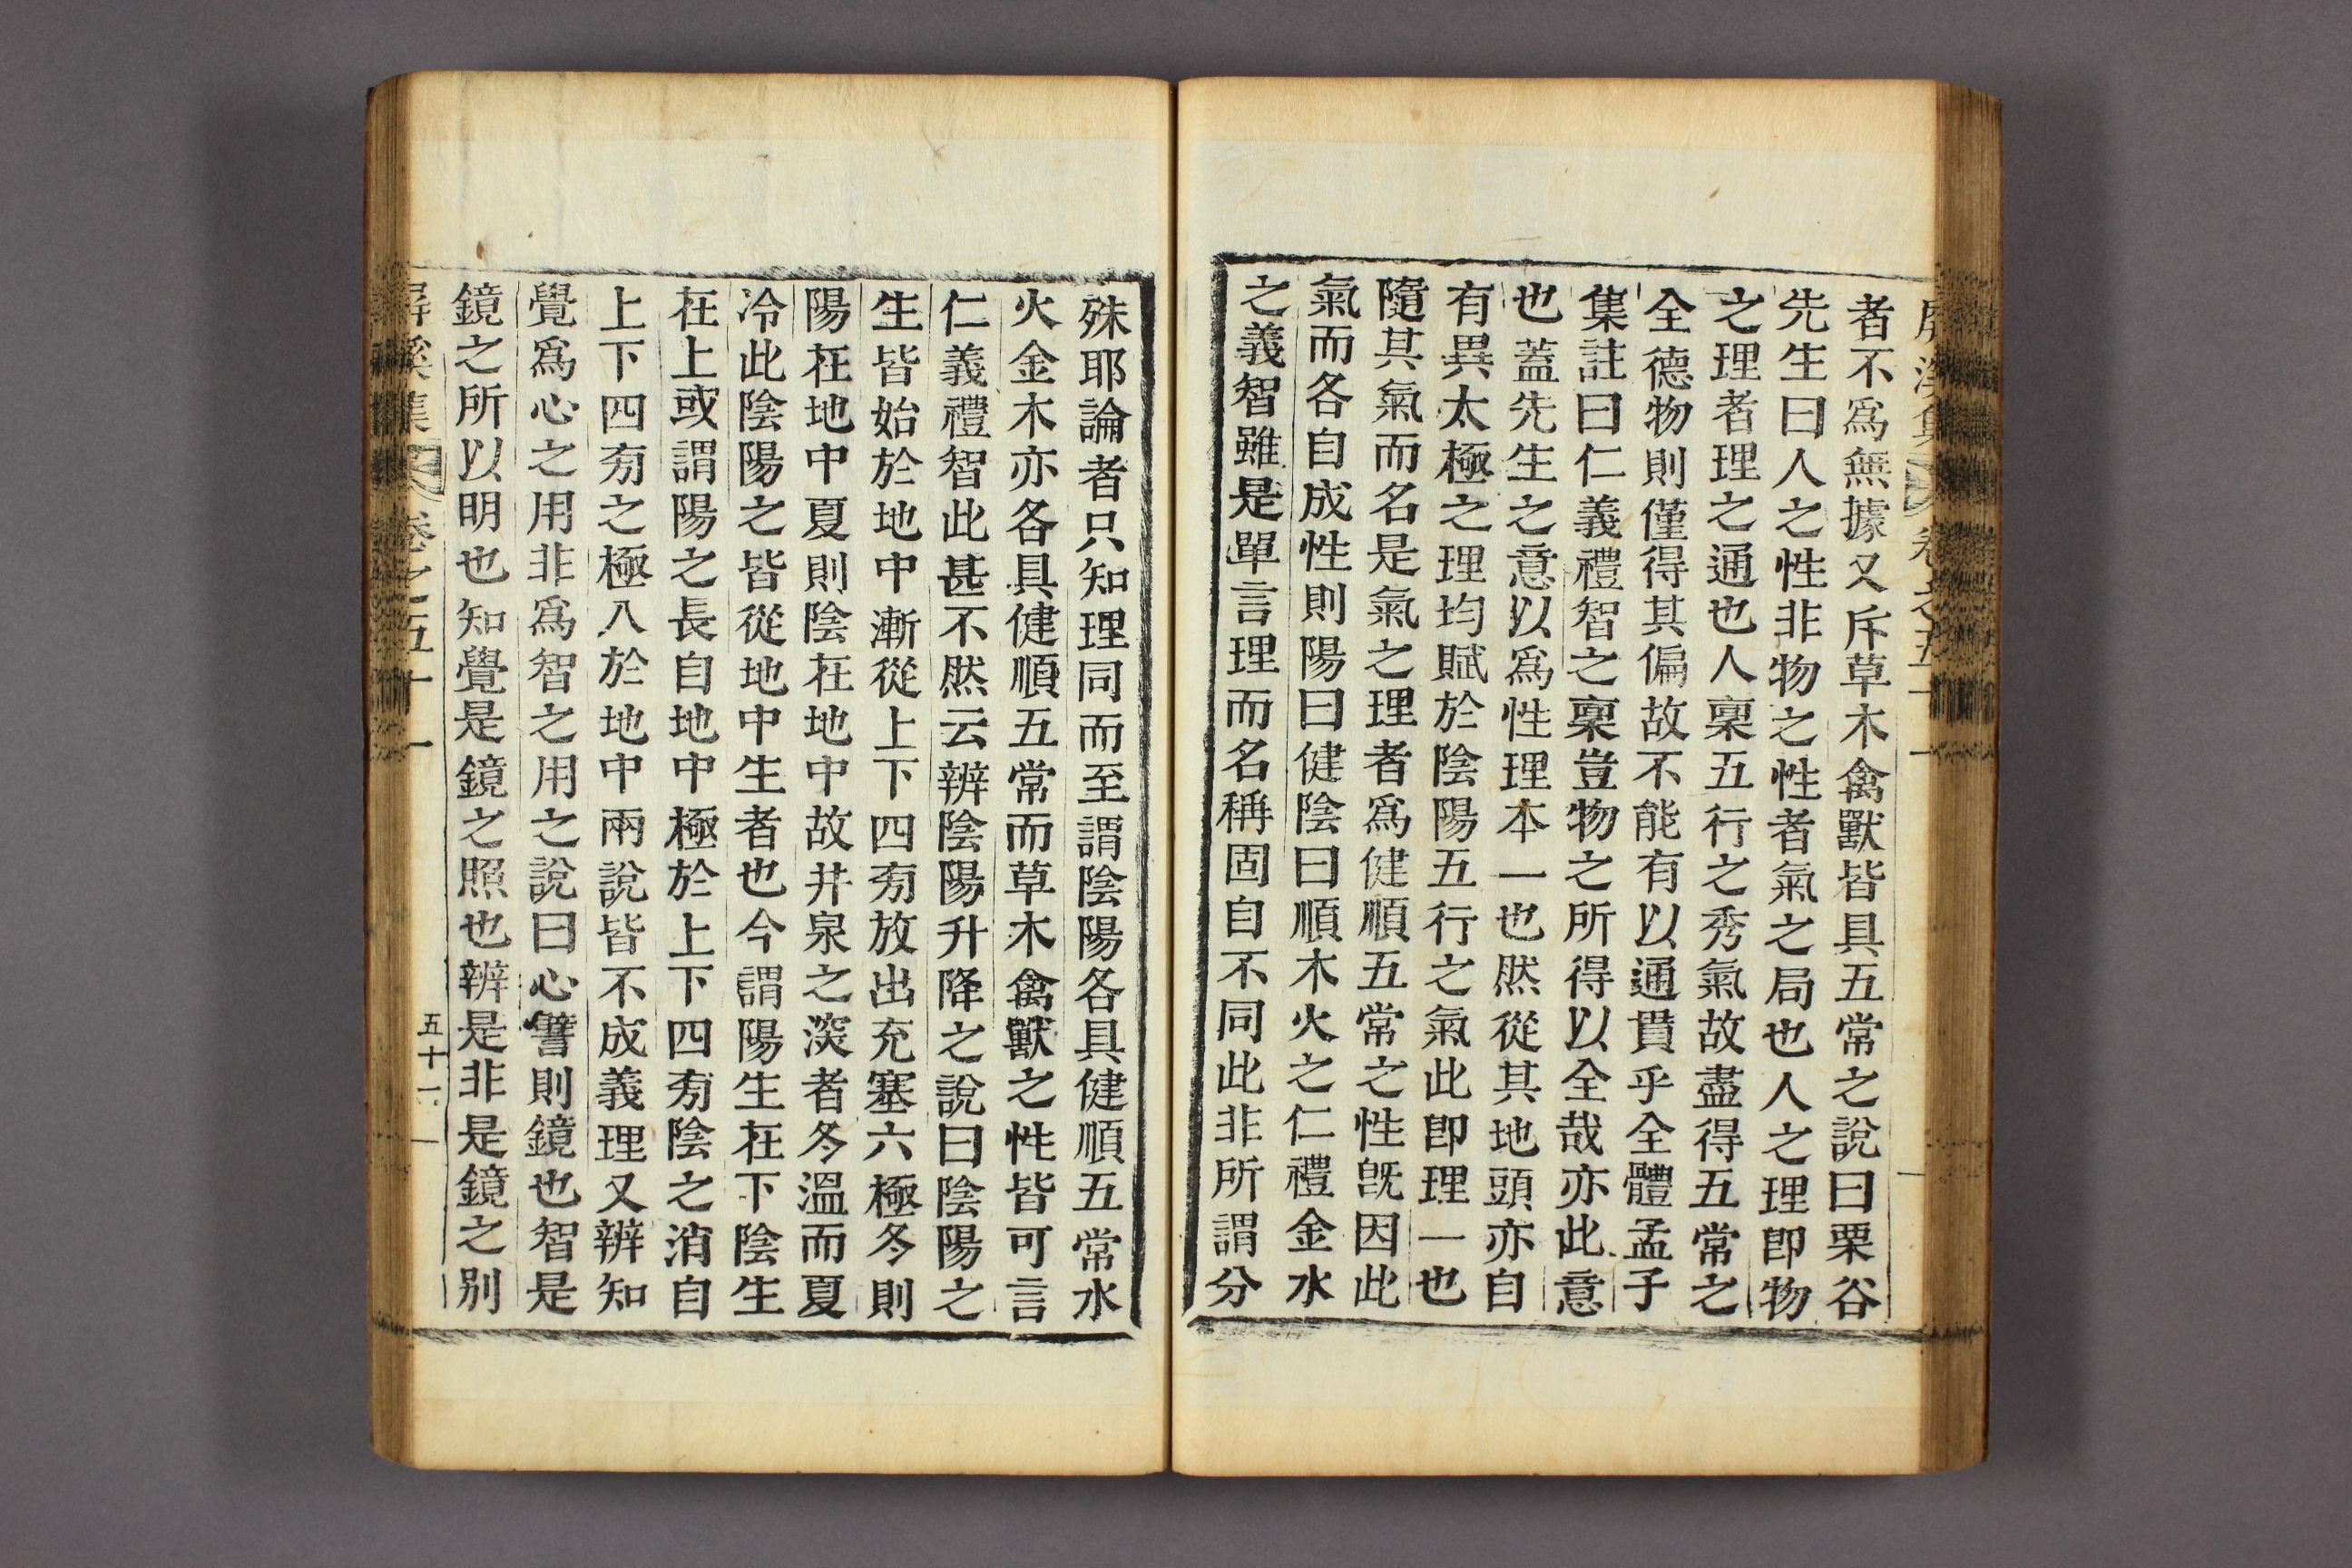 者不爲無據又斥草木禽獸皆具五常之說曰栗谷
先生曰人之性非物之性者氣之局也人之理卽物
之理者理之通也人稟五行之秀氣故盡得五常之
全德物則僅得其偏故不能有以通貫乎全體孟子
集註曰仁義禮智之稟豈物之所得以全哉亦此意
也蓋先生之意以爲性理本一也然從其地頭亦自
有異太極之理均賦於陰陽五行之氣此卽理一也
隨其氣而名是氣之理者爲健順五常之性旣因此
氣而各自成性則陽曰健陰曰順木火之仁禮金水
之義智雖是單言理而名稱固自不同此非所謂分
殊耶論者只知理同而至謂陰陽各具健順五常水
火金木亦各具健順五常而草木禽獸之性皆可言
仁義禮智此甚不然云辨陰陽升降之說曰陰陽之
生皆始於地中漸從上下四旁放出充塞六極冬則
陽在地中夏則陰在地中故井泉之深者冬溫而夏
冷此陰陽之皆從地中生者也今謂陽生在下陰生
在上或謂陽之長自地中極於上下四旁陰之消自
上下四旁之極入於地中兩說皆不成義理又辨知
覺爲心之用非爲智之用之說曰心譬則鏡也智是
鏡之所以明也知覺是鏡之照也辨是非是鏡之別
屛溪集 卷之五十一 五十一